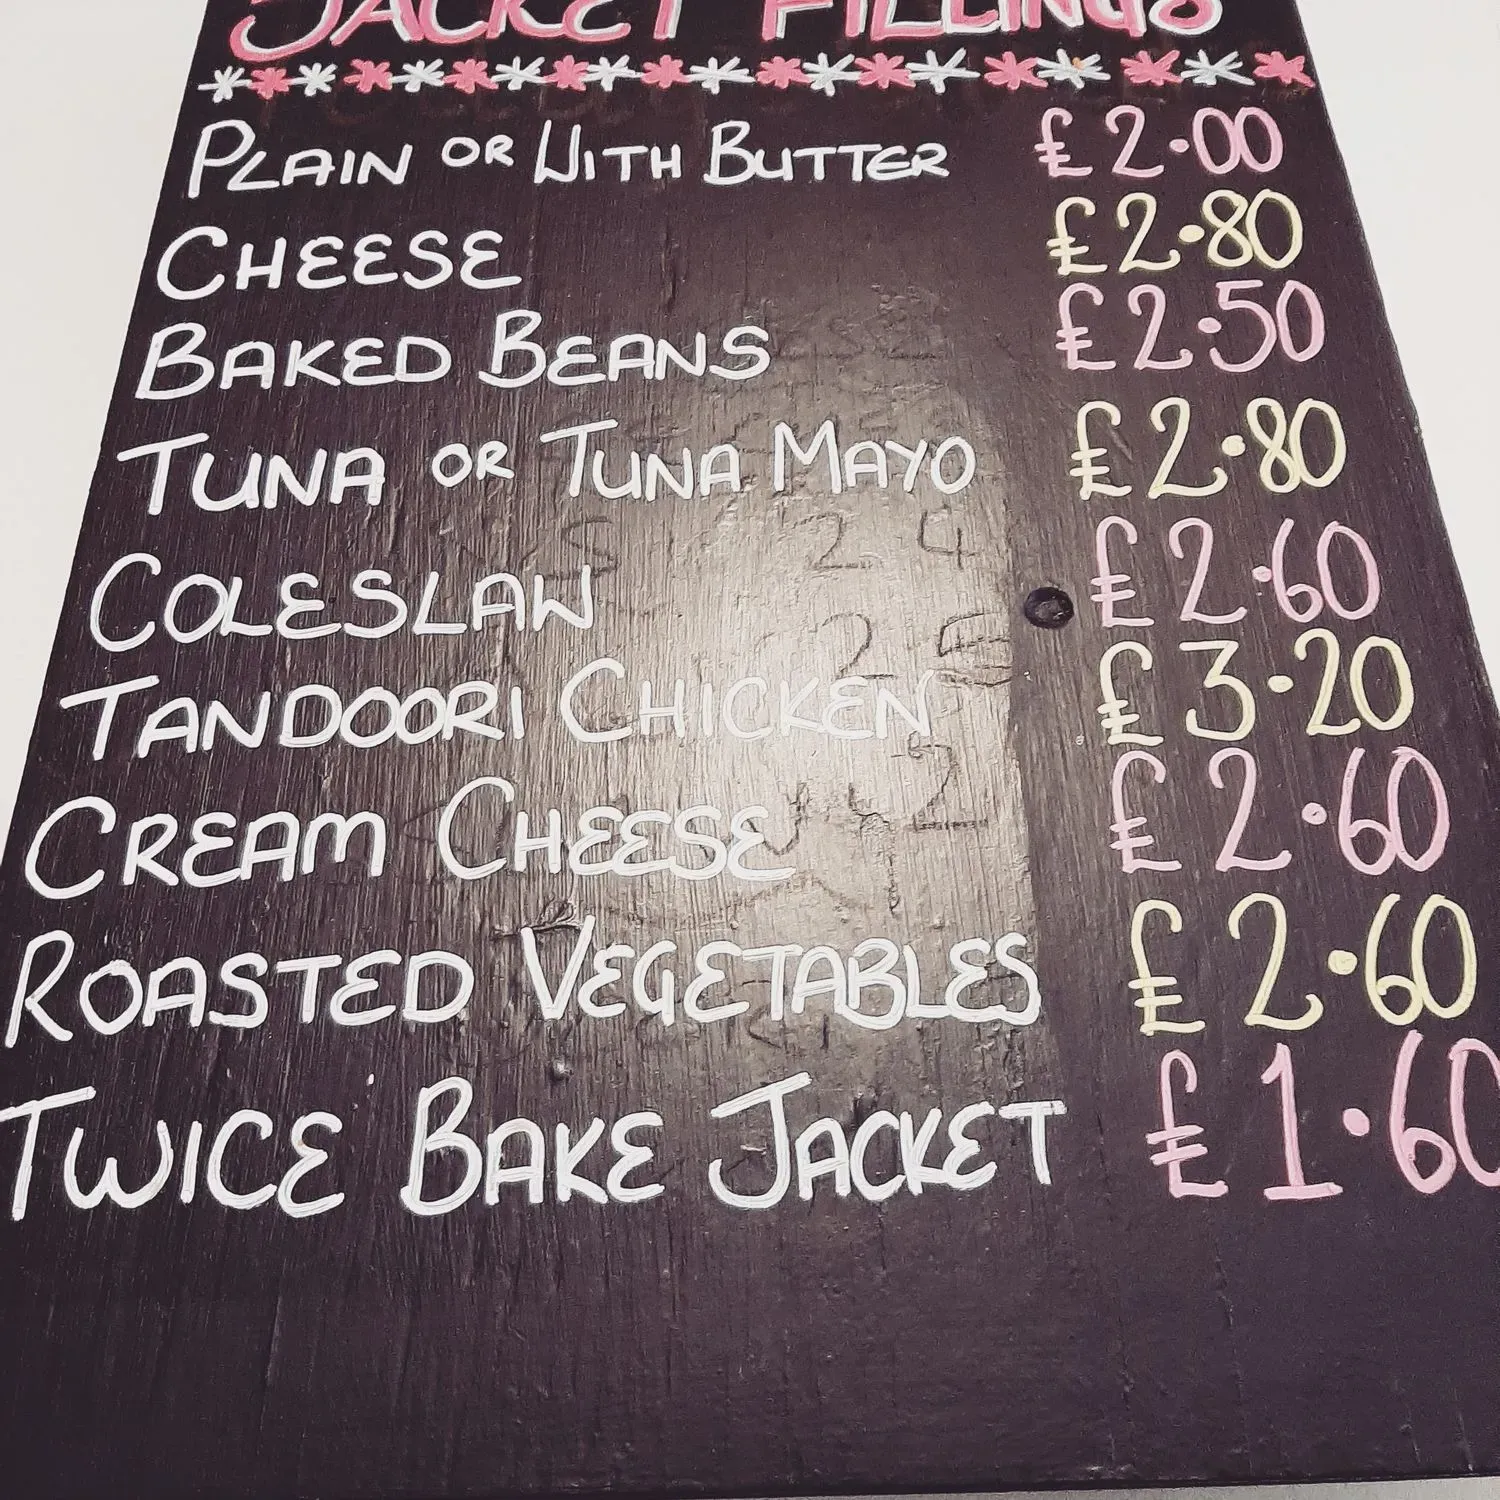 JACKET FILLINGS
PLAIN OR WITH BUTTER £2.00
CHEESE £2.80
BAKED BEANS £2.50
TUNA OR TUNA MAYO £2.80
COLESLAW £2.60
TANDOORI CHICKEN £3.20
CREAM CHEESE £2.60
ROASTED VEGETABLES £2.60
TWICE BAKE JACKET £1.60